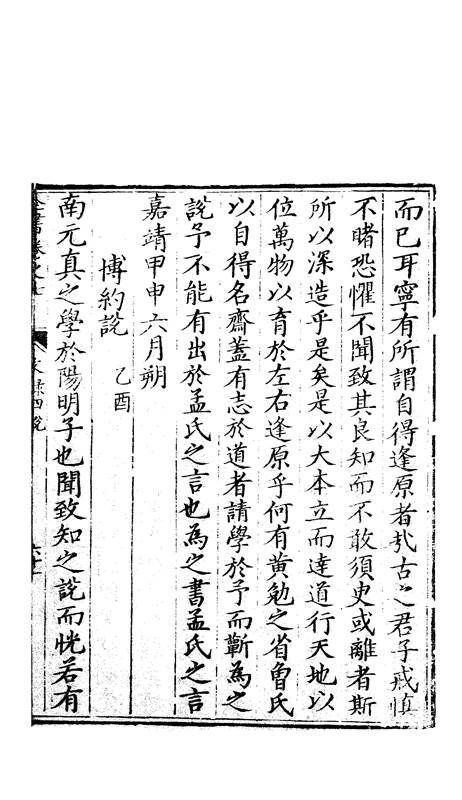 而已耳寧有所謂自得逢原者㢤古之君子戒慎
不睹恐懼不聞致其良知而不敢須臾或離者斯
所以深造乎是矣是以大本立而達道行天地以
位萬物以育於左右逢原乎何有黃勉之省曾氏
以自得名齋蓋有志於道者請學於予而蘄為之
說予不能有出於孟氏之言也為之書孟氏之言
嘉靖甲申六月朔
博約說 乙酉
南元真之學於陽明子也聞致知之說而恍若有